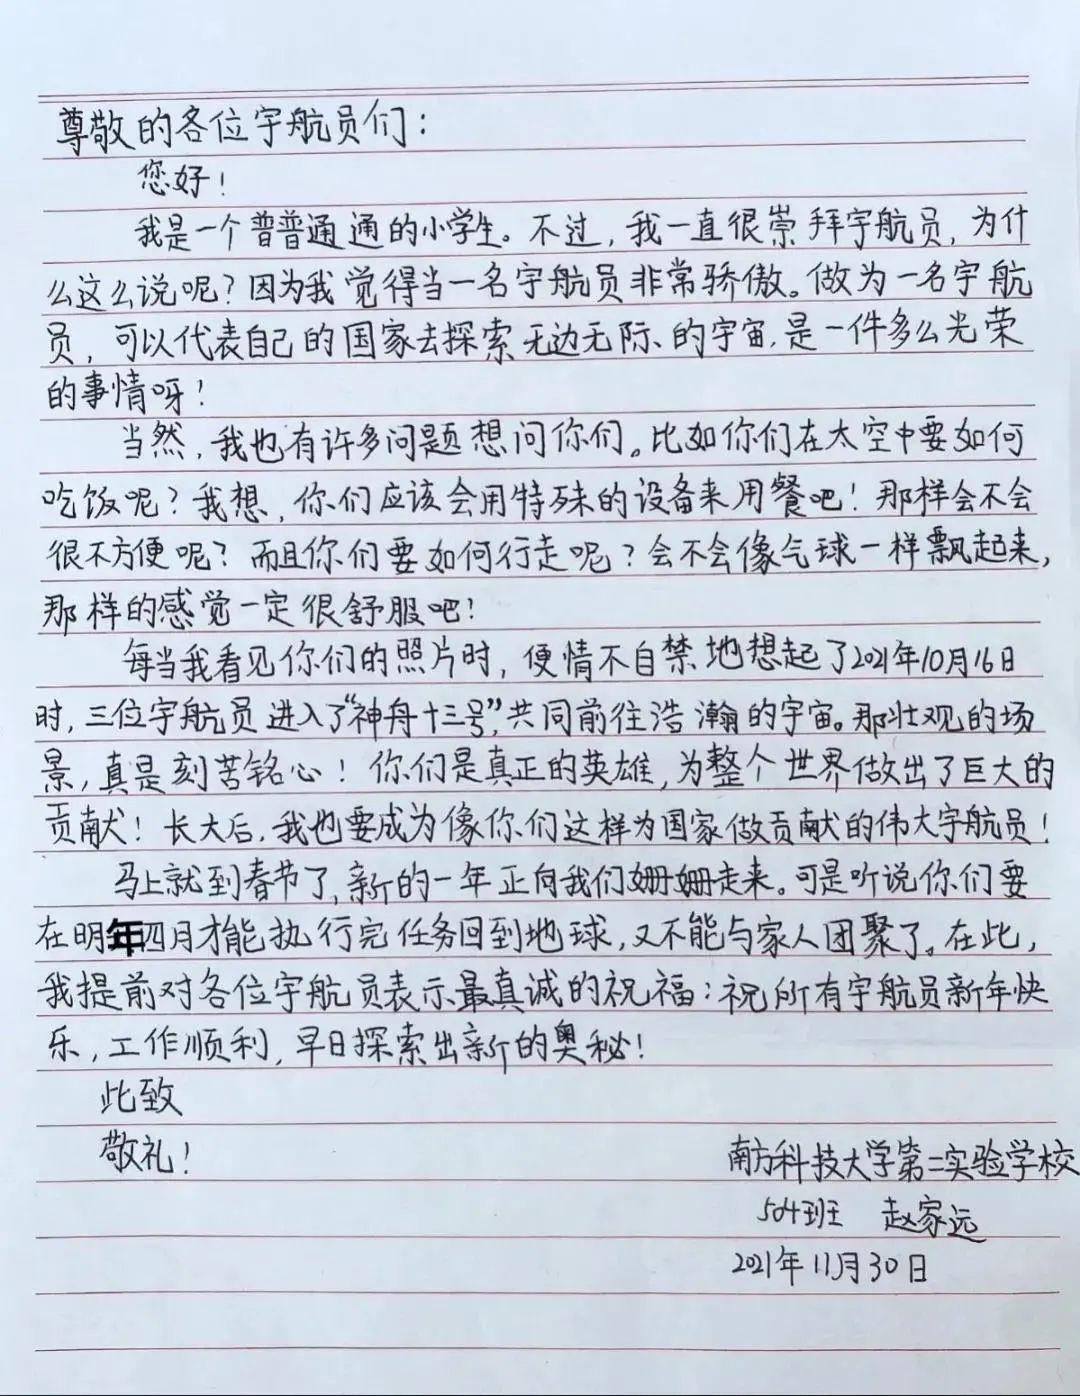 尊敬的各位宇航员们：
您好！
我是一个普普通通的小学生。不过，我一直很崇拜宇航员，为什
么这么说呢？因为我觉得当一名宇航员非常骄傲。做为一名宇航
员，可以代表自己的国家去探索无边无际的宇宙，是一件多么光荣
的事情呀！
当然，我也有许多问题想问你们。比如你们在太空中要如何
吃饭呢？我想，你们应该会用特殊的设备来用餐吧！那样会不会
很不方便呢？而且你们要如何行走呢？会不会像气球一样飘起来，
那样的感觉一定很舒服吧！
每当我看见你们的照片时，便情不自禁地想起了2021年10月16日
时，三位宇航员进入了“神舟十三号”，共同前往浩瀚的宇宙。那壮观的场
景，真是刻苦铭心！你们是真正的英雄，为整个世界做出了巨大的
贡献！长大后，我也要成为像你们这样为国家做贡献的伟大宇航员！
马上就到春节了，新的一年正向我们姗姗走来。可是听说你们要
在明年四月才能执行完任务回到地球，又不能与家人团聚了。在此，
我提前对各位宇航员表示最真诚的祝福：祝所有宇航员新年快
乐，工作顺利，早日探索出新的奥秘！
此致
敬礼！
南方科技大学第二实验学校
504班 赵家远
2021年11月30日